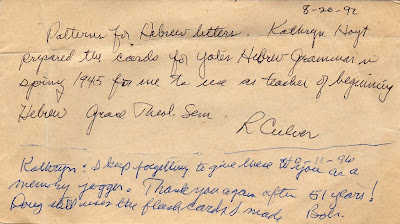 8-20-92
Patterns for Hebrew letters. Kathryn Hoyt
prepared the cards for Yates Hebrew Grammar in
spring 1945 for me to use as teacher of beginning
Hebrew Grace Theol. Sem.
R Culver
9-11-96
Kathryn: I keep forgetting to give these to you as a
memory jogger. Thank you again after 51 years!
Doug still uses the flash cards I made Bob.